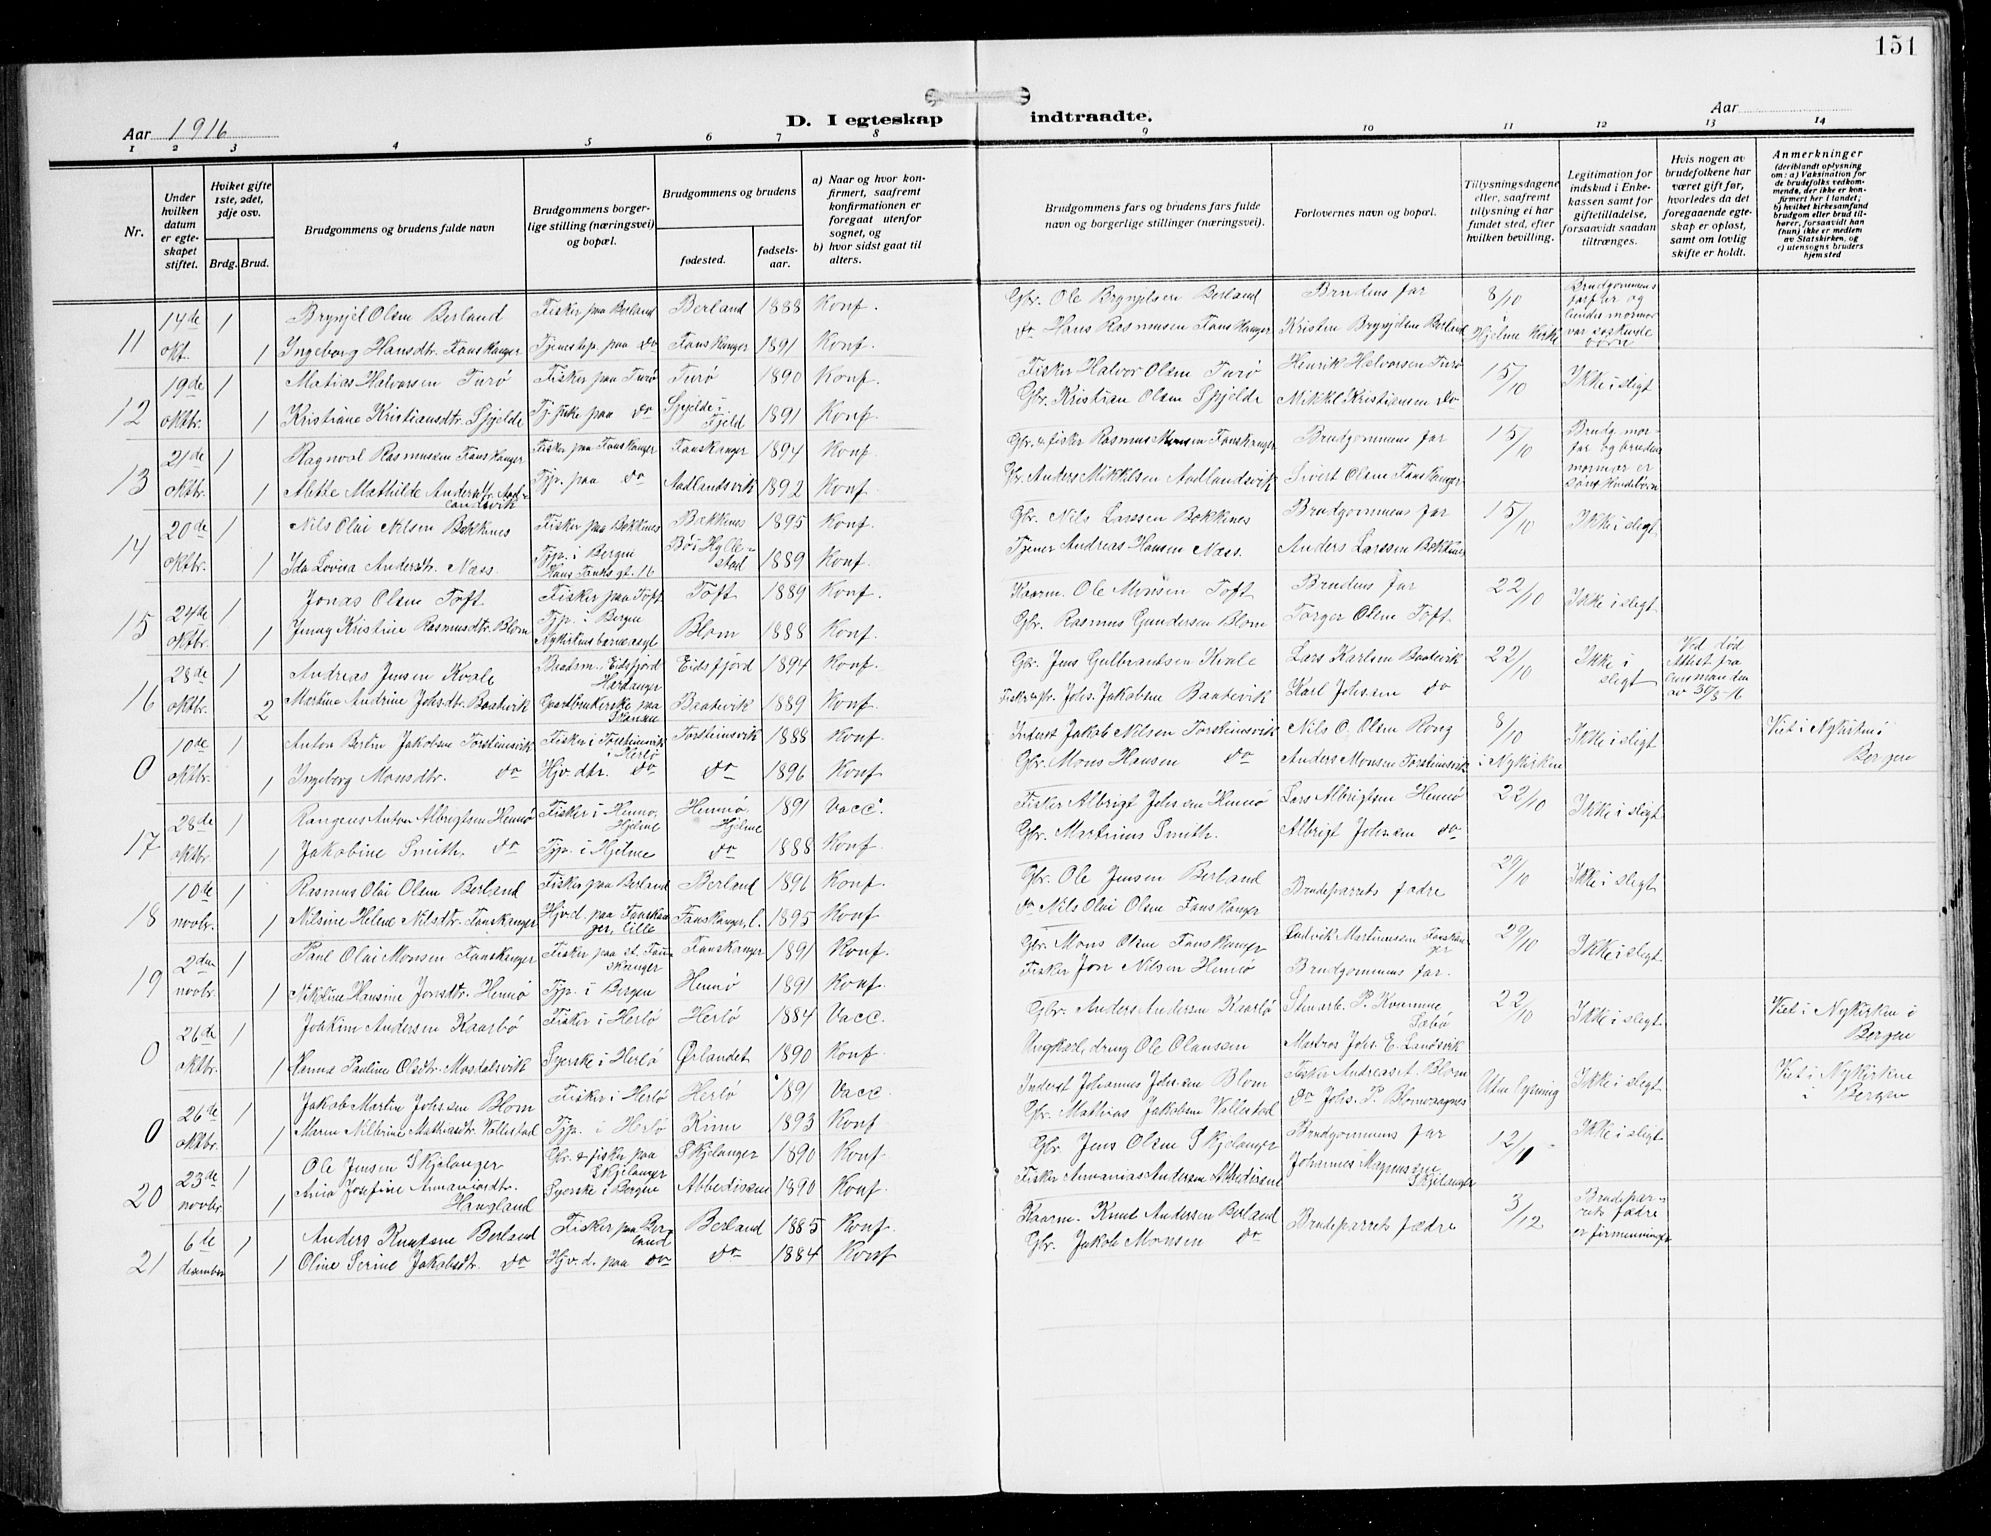 151
Aar 1916
D. I egteskap indtraadte.
Aar
1 2 3 4 5 6 7 8 9 10 11 12 13 14
Nr.
Under hvilken datum er egteskapet stiftet.
Hvilket gifte 1ste, 2det, 3dje osv.
Brdg. Brud.
Brudgommens og brudens fulde navn
Brudgommens borgerlige stilling (næringsvei) og bopæl.
Brudgommens og brudens
fødested.
fødsels-aar.
a) Naar og hvor konfirmert, saafremt konfirmationen er foregaat utenfor sognet, og
b) hvor sidst gaat til alters.
Brudgommens fars og brudens fars fulde navn og borgerlige stillinger (næringsvei).
Forlovernes navn og bopæl.
Tillysningsdagene eller, saafremt tillysning ei har fundet sted, efter hvilken bevilling.
Legitimation for indskud i Enkekassen samt for giftetilladelse, forsaavidt saadan tiltrænges.
Hvis nogen av brudefolkene har været gift før, hvorledes da det foregaaende egteskap er opløst, samt om lovlig skifte er holdt.
Anmerkninger
(deriblandt oplysning om: a) Vaksination for de brudefolks vedkommende, der ikke er konfirmert her i landet; b) hvilket kirkesamfund brudgom eller brud tilhører, forsaavidt han (hun) ikke er medlem av Statskirken, og c) utensogns bruders hjemsted
11 14de okt. 1 Brynjel Olsen Berland Fisker paa Berland Berland 1888 Konf. Gbr. Ole Brynjelsen Berland Brudens far 8/10 Brudgommens farfar og brudes mormor var søskende børn
1 Ingeborg Hansdtr. Fanskanger Tjenestep. paa do Fanskanger 1891 Konf. do Hans Rasmussen Fanskanger Kristen Brynjelsen Berland i Hjelme Kirke
12 19de oktbr. 1 Matias Halvorsen Turø Fisker paa Turø Turø 1890 Konf. Fisker Halvor Olsen Turø Henrik Halvorsen Turø 15/10 Ikke i slegt
1 Kristine Kristiansdtr. Spjelde Tj. pike paa do Spjelde i Fjeld 1891 Konf. Gbr. Kristian Olsen Spjelde Mikkel Kristiansen do
13 21de oktbr. 1 Ragnval Rasmussen Fanskanger Fisker paa Fanskanger Fanskanger 1894 Konf. Gbr. & fisker Rasmus Monsen Fanskanger Brudgommens far 15/10 Brudg. morfar og brudens mormor er
1 Mette Mathilde Andersdtr. Aadlandsvik Tjp. paa do Aadlandsvik 1892 Konf. Gbr. Anders Mikkelsen Aadlandsvik Sivert Olsen Fanskanger
14 20de oktbr. 1 Nils Olai Nilsen Bakkenes Fisker paa Bakkenes Bakkenes 1895 Konf. Gbr. Nils Larssen Bakkenes Brudgommens far 15/10 Ikke i slegt
1 Ida Lovisa Andersdtr. Næss. Tjp. i Bergen Hans Tanks gt. 16 Bø i Hyllestad 1889 Konf. Tjener Andreas Hansen Næss. Anders Larssen Bakkenes
15 24de oktbr. 1 Jonas Olsen Toft Fisker paa Toft Toft 1889 Konf. Kaarm. Ole Monsen Toft Brudens far 22/10 Ikke i slegt
1 Jenny Kristine Rasmusdtr. Blom Tjp. i Bergen Nykirkens barneasyl Blom 1888 Konf. Gbr. Rasmus Gundersen Blom Torger Olsen Toft.
16 28de oktbr. 1 Andreas Jensen Kvale Baadsm. Eidsfjord Hardanger Eidsfjord 1894 Konf. Gbr. Jens Gulbrandsen Kvale Lars Karlsen Baatevik 22/10 Ikke i slegt Ved død Attest fra lensmanden av 30/8-16
2 Martine Andrine Johsdtr. Baatevik Gaardbrukerske paa Skansen Baatevik 1889 Konf. Fisker & Gbr. Johs. Jakobsen Baatevik Karl Johssen do
0 10de oktbr. 1 Anton Bertin Jakobsen Torsteinsvik Fisker i Torsteinsvik i Herlø Torsteinsvik 1888 Konf. Inderst Jakob Nilsen Torsteinsvik Nils O. Olsen Rong 8/10 Ikke i slegt Viet i Nykirken i Bergen
1 Ingeborg Monsdtr. do Hjv. dtr. do do 1896 Konf. Gbr. Mons Hansen do Anders Monsen Torsteinsvik i Nykirken
17 28de oktbr. 1 Rangens Anton Albrigtsen Hennø Fisker i Hennø, Hjelme Hennø, Hjelme 1891 Vacc. Fisker Albrigt Johssen Hennø Lars Albrigtsen Hennø 22/10 Ikke i slegt
1 Jakobine Smith. do Tjp. i Hjelme do 1888 Konf. Gbr. Martinus Smith. Albrigt Johssen do
18 10de novbr. 1 Rasmus Olai Olsen Berland Fisker paa Berland Berland 1896 Konf. Gbr. Ole Jensen Berland Brudeparrets fædre 29/10 Ikke i slegt
1 Nilsine Helene Nilsdtr. Fanskanger Hjv.d. paa Fanskanger, lille Fanskanger, l. 1895 Konf. do Nils Olai Olsen Fanskanger
19 2den novbr. 1 Paul Olai Monsen Fanskanger Fisker paa st. Fanskanger Fanskanger 1891 Konf. Gbr. Mons Olsen Fanskanger Ludvik Martinussen Fanskanger 29/10 Ikke i slegt.
1 Nikoline Hansine Jonsdtr. Hennø Tjp. i Bergen Hennø 1891 Konf. Fisker Jon Nilsen Hennø Brudgommens far.
0 26de oktbr. 1 Joakim Andersen Kaarbø Fisker i Herlø Herlø 1884 Vacc. Gbr. Anders Andersen Kaarbø Stenarb. P. Kvamme Sæbø 22/10 Ikke i slegt Viet i Nykirken i Bergen
1 Hanna Pauline Olsdtr. Mosdalsvik Syerske i Herlø Ørlandet 1890 Konf. Ungkarl, dreng Ole Olaussen Matros Johs. E. Landsvik
0 26de oktbr. 1 Jakob Martin Johssen Blom Fisker i Herlø Herlø 1891 Vacc. Inderst Johannes Johssen Blom Fisker Andreas Blom Uten lysning Ikke i slegt Viet i Nykirkene i Bergen
1 Maren Nilbrine Mathiasdtr. Vallestad Tjp. i Herlø Kinn 1893 Konf Gbr. Mathias Jakobsen Vallestad do Johs. P. Blomvaagnes
20 23de novbr 1 Ole Jensen Skjelanger Gbr. & fisker paa Skjelanger Skjelanger 1890 Konf. Gbr. Jens Olsen Skjelanger Brudgommens far 12/11 Ikke i slegt.
1 Ana Josefine Haugland Syerske i Bergen 1890 Konf. Fisker Ananias Andersen Johannes Magnussen Skjelanger
21 6de desember 1 Anders Knutsen Berland Fisker paa Berland Berland 1885 Konf. Kaarm. Knut Andersen Berland Brudeparrets fædre 3/12 Brudeparrets fædre er firmenninger
1 Oline Serine Jakobsdtr. do Hjv.d. paa do do 1884 Konf Gbr. Jakob Monsen do